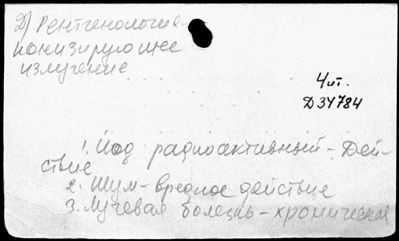 2) Рентгенология -
ионизирующее
излучение
4 ит.
D34784
1. Йод радиоактивный - Дей-
ствие
2. Шум - вредное действие
3. Лучевая болезнь - хроническая